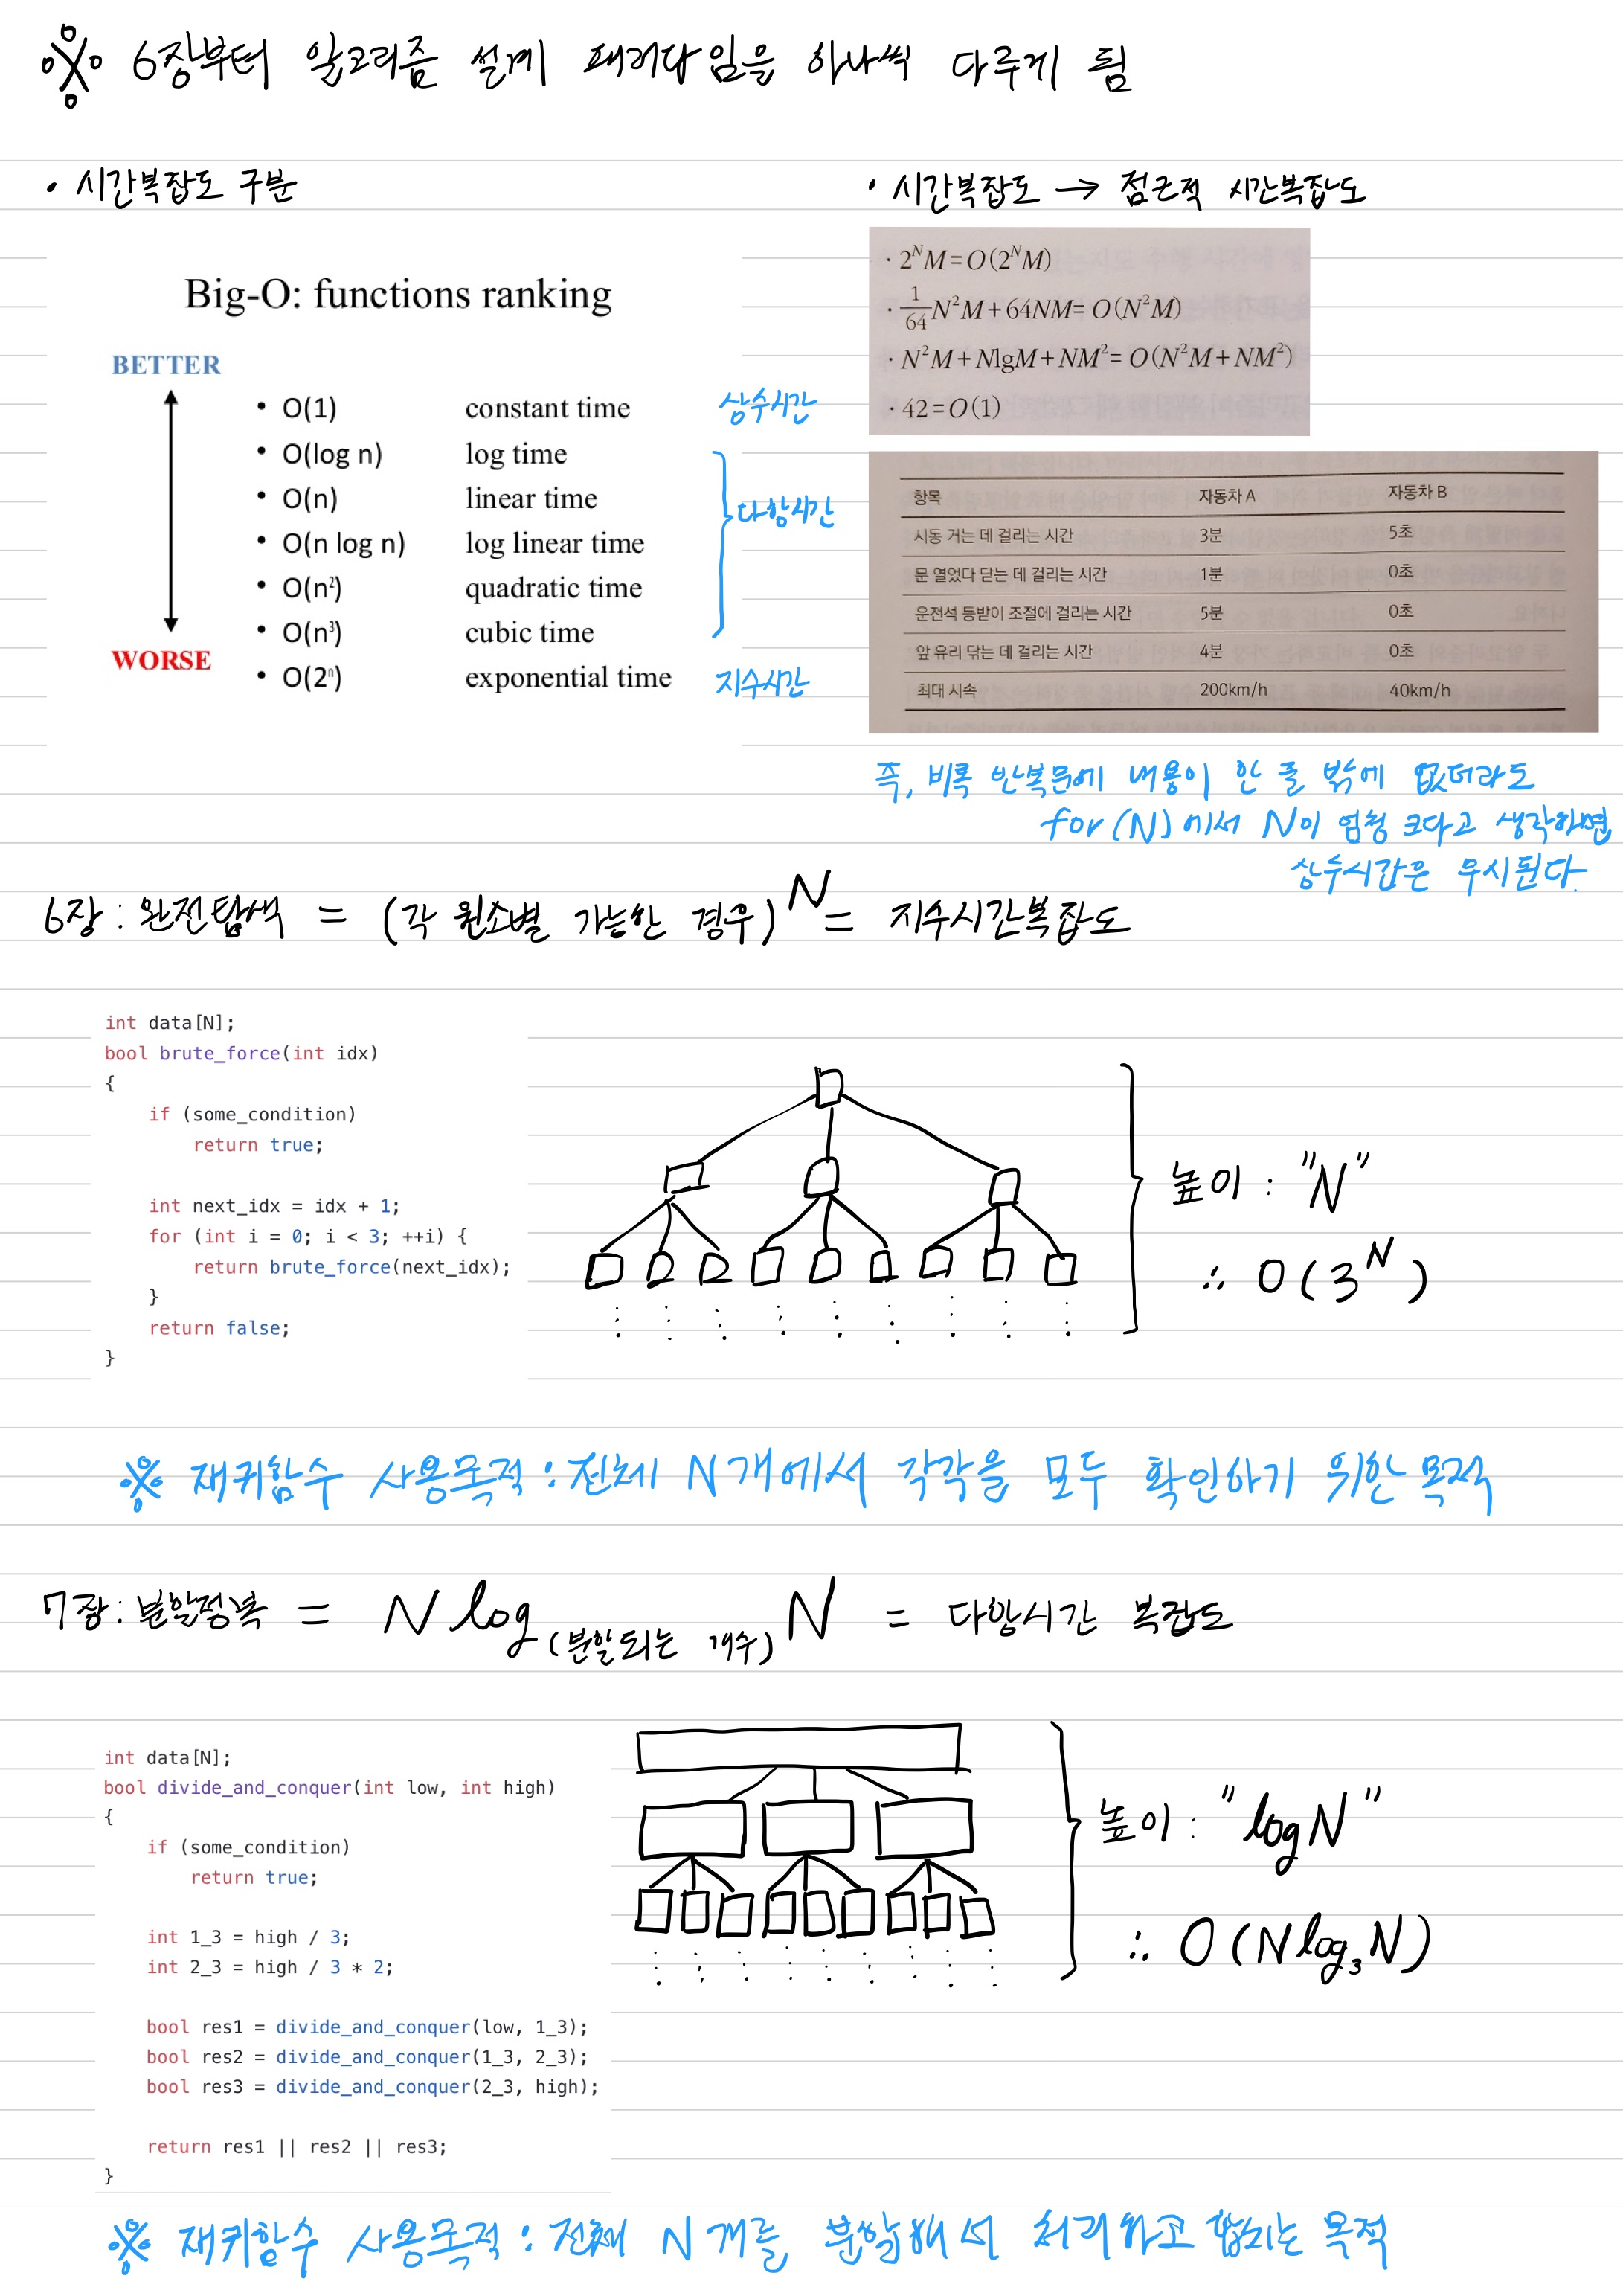 ※ 6장부터 알고리즘 설계 패러다임을 하나씩 다루게 됨
· 시간복잡도 구분
Big-O: functions ranking
BETTER
• O(1) constant time 상수시간
• O(log n) log time
• O(n) linear time
• O(n log n) log linear time
다항시간
• O(n²) quadratic time
• O(n³) cubic time
WORSE
• O(2ⁿ) exponential time 지수시간
· 시간복잡도 → 점근적 시간복잡도
· 2ᴺM=O(2ᴺM)
· 1/64 N²M+64NM= O(N²M)
· N²M+NlgM+NM²= O(N²M+NM²)
· 42=O(1)
항목 자동차 A 자동차 B
시동 거는 데 걸리는 시간 3분 5초
문 열었다 닫는 데 걸리는 시간 1분 0초
운전석 등받이 조절에 걸리는 시간 5분 0초
앞 유리 닦는 데 걸리는 시간 4분 0초
최대 시속 200km/h 40km/h
즉, 비록 반복문에 내용이 한 줄 밖에 없더라도
for (N) 에서 N이 엄청 크다고 생각하면
상수시간은 무시된다.
6장 : 완전탐색 = (각 원소별 가능한 경우)ᴺ = 지수시간복잡도
int data[N];
bool brute_force(int idx)
{
if (some_condition)
return true;
int next_idx = idx + 1;
for (int i = 0; i < 3; ++i) {
return brute_force(next_idx);
}
return false;
}
높이 : "N"
∴ O(3ᴺ)
※ 재귀함수 사용목적 : 전체 N개에서 각각을 모두 확인하기 위한 목적
7장 : 분할정복 = N log(분할되는 개수) N = 다항시간 복잡도
int data[N];
bool divide_and_conquer(int low, int high)
{
if (some_condition)
return true;
int 1_3 = high / 3;
int 2_3 = high / 3 * 2;
bool res1 = divide_and_conquer(low, 1_3);
bool res2 = divide_and_conquer(1_3, 2_3);
bool res3 = divide_and_conquer(2_3, high);
return res1 || res2 || res3;
}
높이 : "logN"
∴ O(Nlog₃N)
※ 재귀함수 사용목적 : 전체 N개를 분할해서 처리하고 합치는 목적